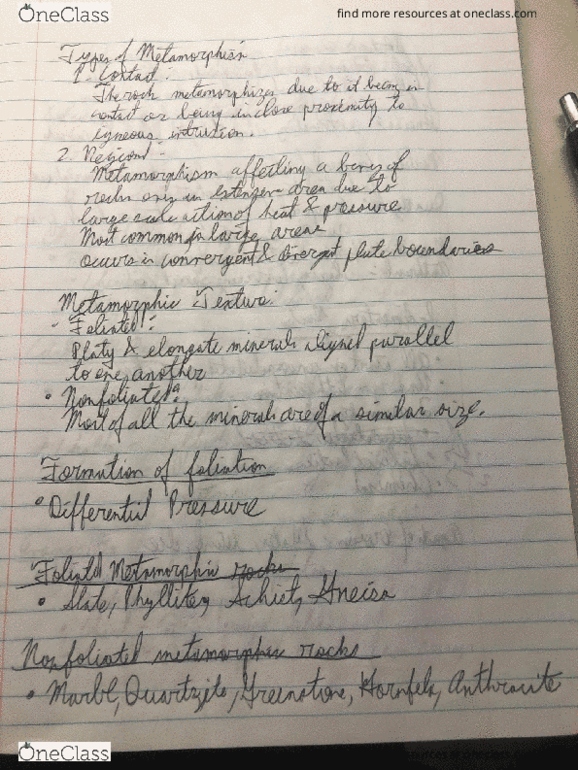 OneClass
find more resources at oneclass.com
Types of Metamorphism
1. Contact:
The rock metamorphizes due to it being in
contact or being in close proximity to
igneous intrusion.
2. Regional:
Metamorphism affecting a body of
rocks over an extensive area due to
large scale action of heat & pressure
Most common in large areas
occurs in convergent & divergent plate boundaries
Metamorphic Texture:
- Foliated:
Platy & elongate minerals aligned parallel
to one another
• Nonfoliated:
Most of all the minerals are of a similar size.
Formation of foliation
• Differential Pressure
Foliated Metamorphic rocks
• Slate, Phyllite, Schist, Gneiss
Nonfoliated metamorphic rocks
• Marble, Quartzite, Greenstone, Hornfels, Anthracite
OneClass
resources at oneclass.com